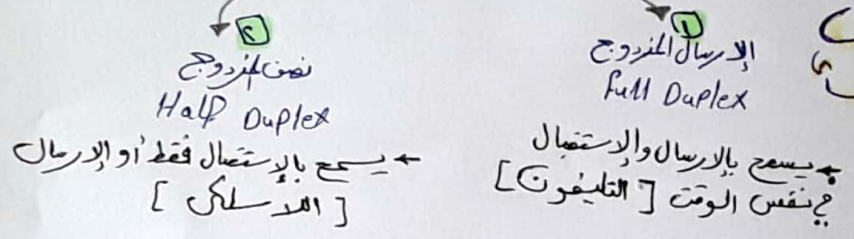 ١
الإرسال المزدوج
Full Duplex
← يسمح بالإرسال والإستقبال
في نفس الوقت [التليفون]
٢
نصف المزدوج
Half Duplex
← يسمح بالإستقبال فقط أو الإرسال
[اللاسلكى]